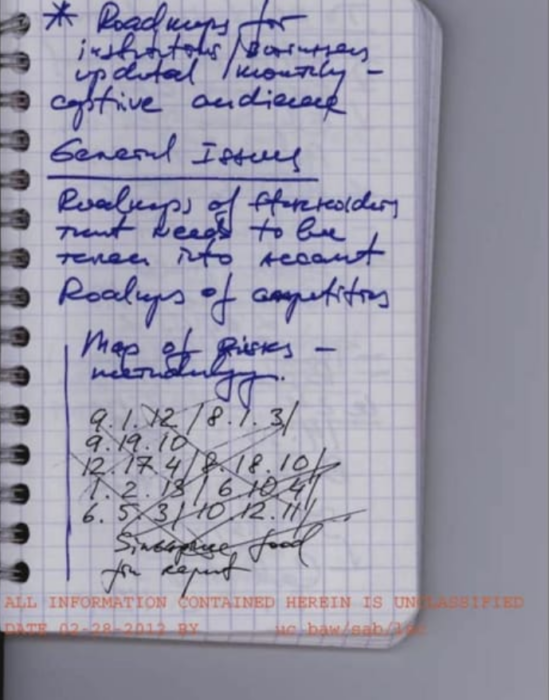 * Roadmaps for
institutions / businesses
updated monthly -
captive audience
General Issues
Roadmaps of stakeholders
that needs to be
taken into account
Roadmaps of competitors
Map of Risks -
methodology.
9.1.12/8.1.3/
9.19.10
12.17.4/8.18.10/
1.2.13/6.10.4/
6.5.3/10.12.11/
food
for report
ALL INFORMATION CONTAINED HEREIN IS UNCLASSIFIED
DATE 02-28-2012 BY uc baw/sab/lsc